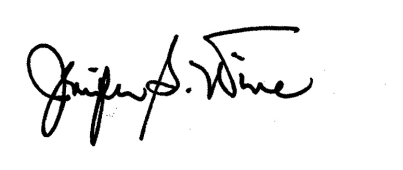 Jennifer S. Wine